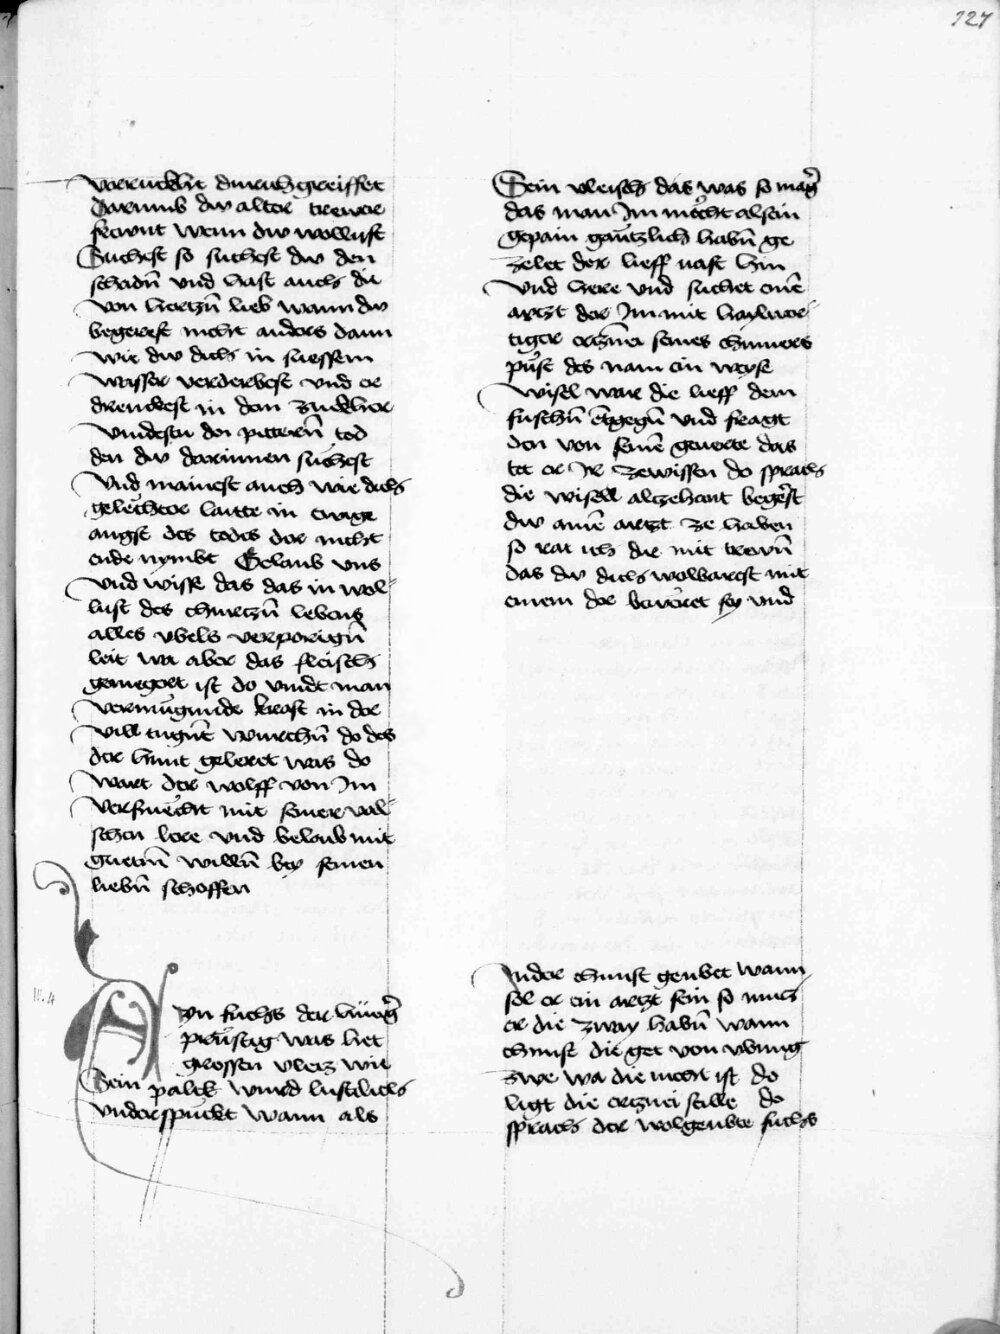 127
verrucklit durichgreiffet
Darumb dw alter trewer
frewnt wenn dw wollust
Suchest so suchest dw den
schadn̄ vnd hast auch die
von hertzn̄ lieb wann dw
begerest nicht anders dann
wie dw dich in suessem
wasser verderbest vnd er
drenckest in dem zuckher
vindestu den pittern̄ tod
den dw darinnen suchest
vnd mainest auch wie dich
gelechter laitte in ewige
angst des todes der nicht
ende nymbt Gelaub vns
vnd wisse das das in wol
lust des churtzn̄ lebens
alles vbels verporign̄
leit wa aber das fleisch
gemegert ist do vindt man
vermugunde krafft in der
vill tugnt̄ wurchn̄ do des
der hunt geleret was do
wart der wolff von Jm
versmecht mit seiner val
schen lere vnd beleib mit
guetm̄ willn̄ bey seinen
liebn̄ schoffen
III. 4
Ayn fuchs der hunḡ
preustig was het
grossen vleiz wie
Sein palck wurd lustleich
vnderspickt wann als
Sein vleisch das was so maḡ
das man Jm mecht al sein
gepain gantzlich habn̄ ge
zelet der lieff vast hin
vnd here vnd suchet einē
artzt der Jm mit haylwer
tiger ercznei seines chumers
puest des nam ein weyse
wisel war die lieff dem
fuschn̄ entgegn̄ vnd fragt
den von seinē geuerte das
tet er Jr zewissen do sprach
die wisell altzehant begerst
dw ainē artzt ze haben
so rat ich dir mit trewn̄
das dw dich wolbarest mit
einem der beweret sey vnd
Jn der chunst geubet wann
sol er ein artzt sein so mues
er die zway habn̄ wann
chunst die get von vbung
zwe wa die nicht ist do
ligt die ercznei stille do
sprach der wolgeubte fuchs